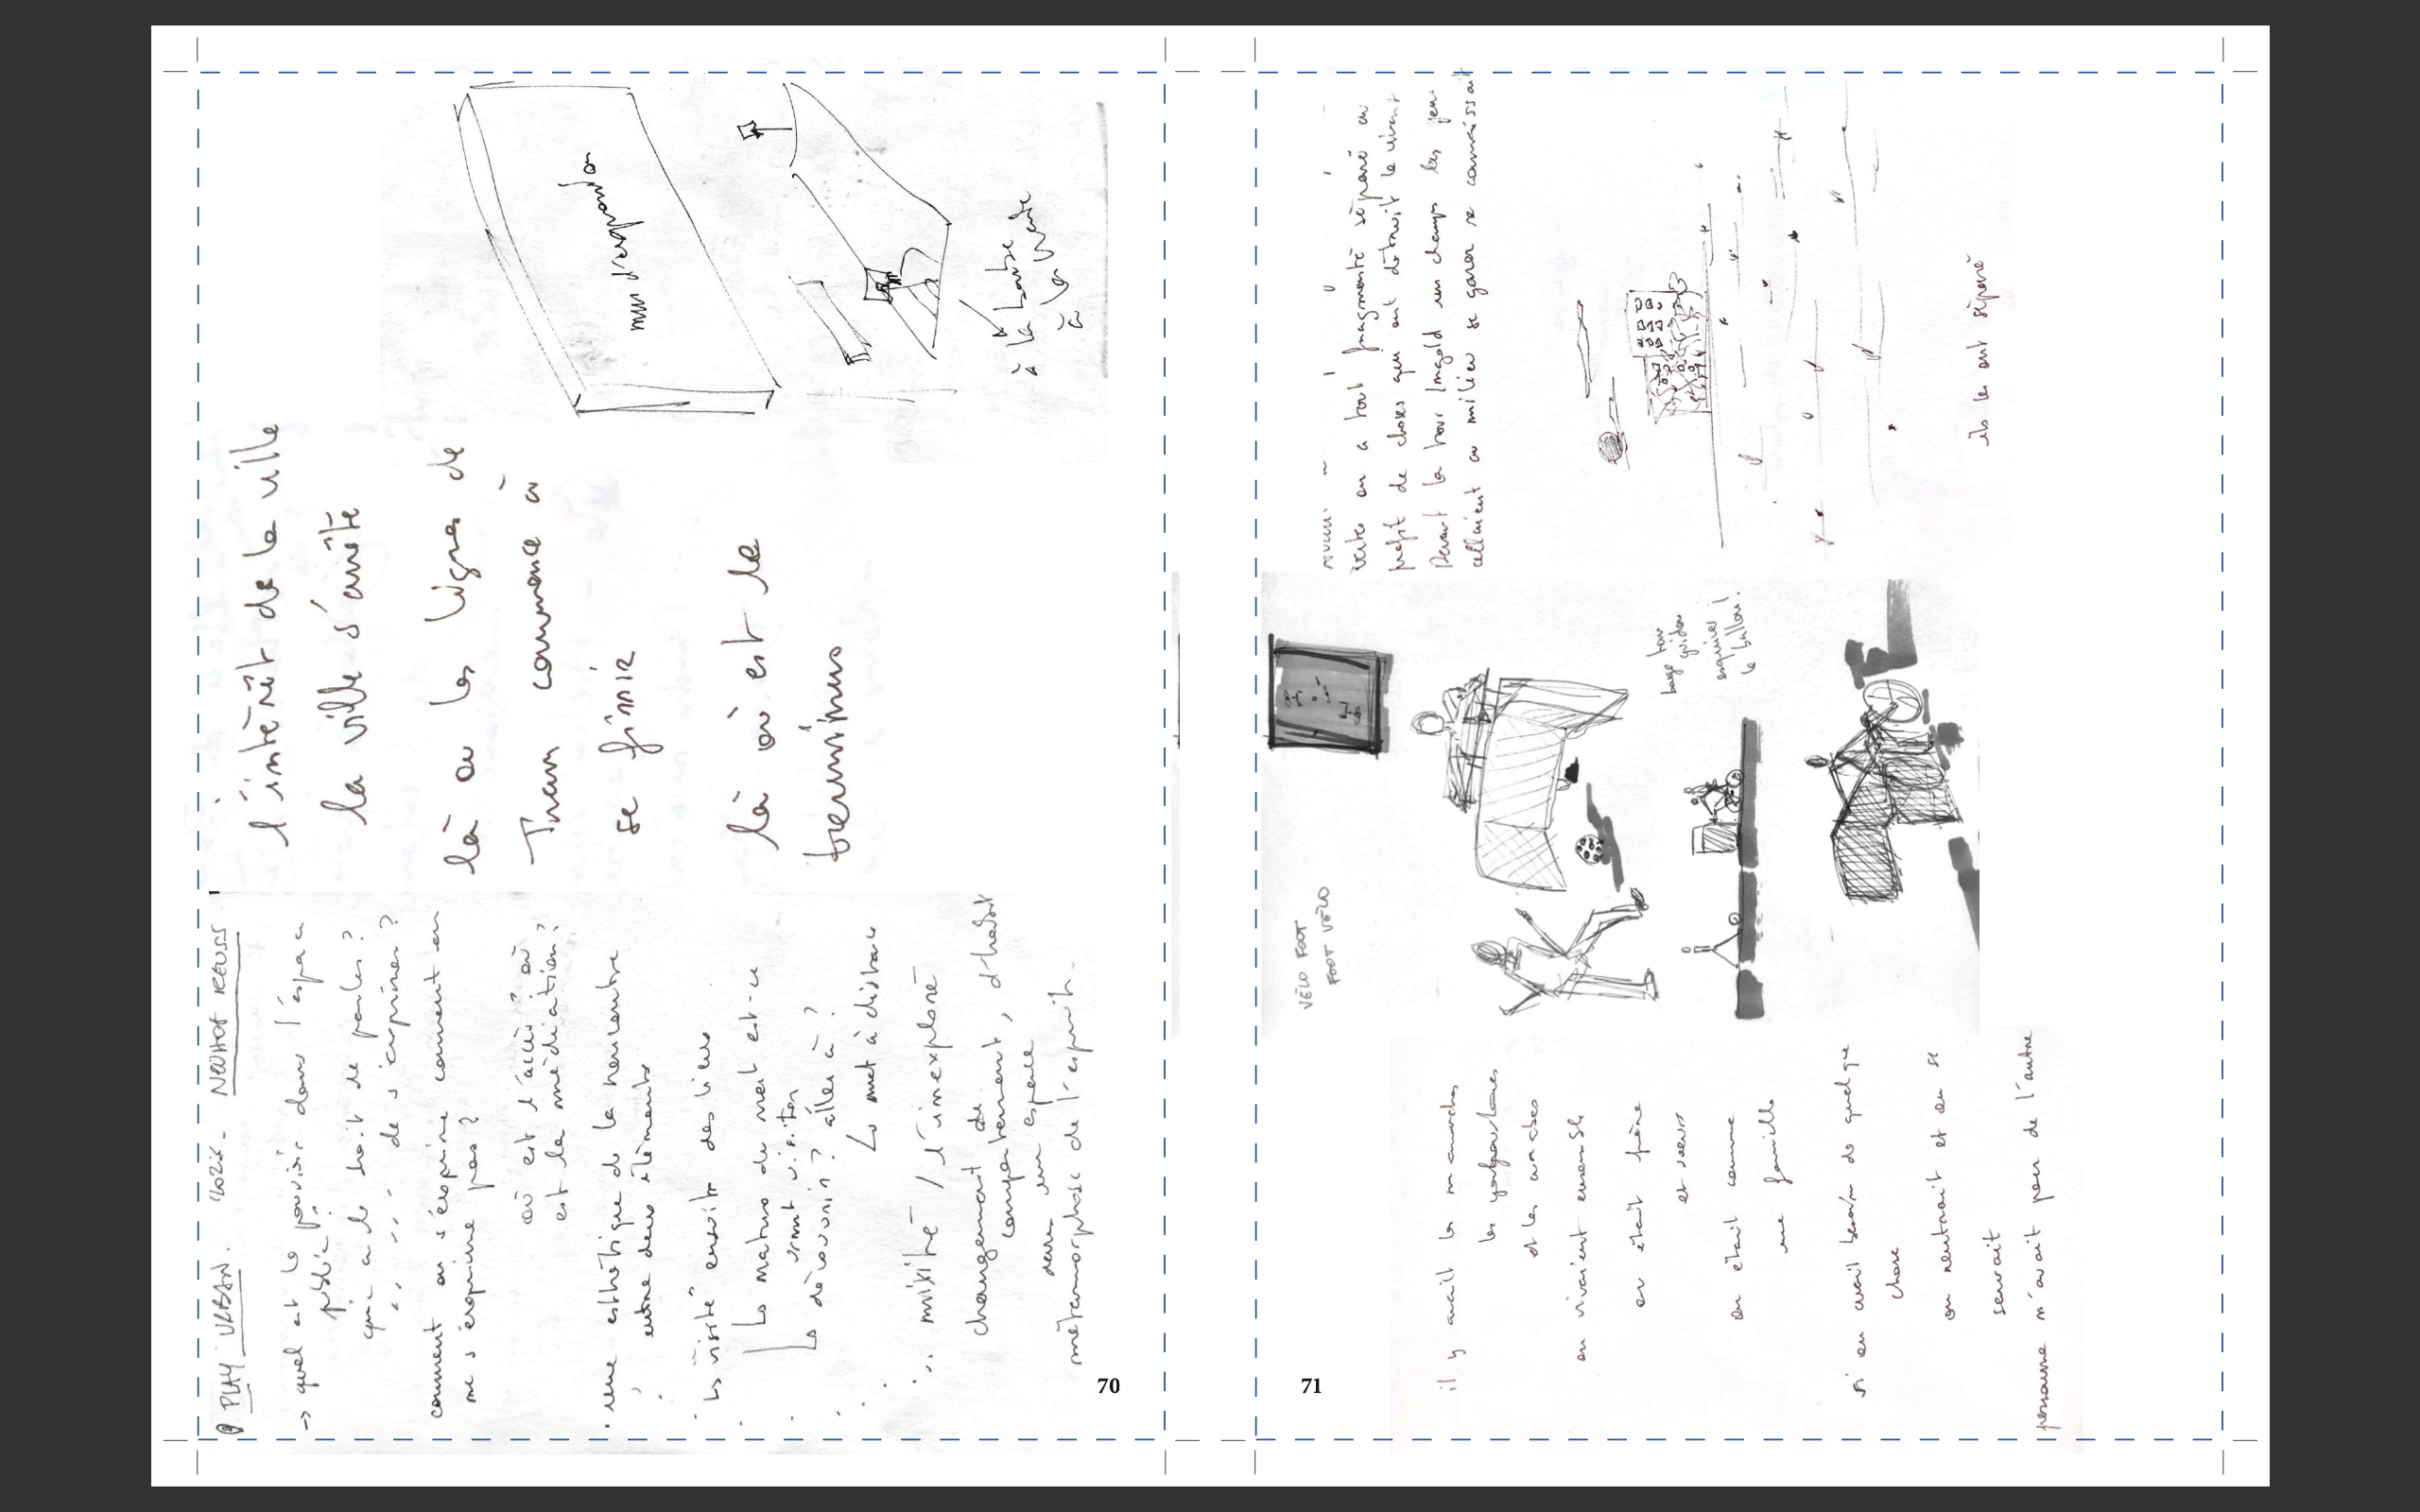 PLAY URBAN. - NEUHOF REUSS
→ quel est le pouvoir dans l'espace
public ?
qui a le droit de parler ?
" " " de s'exprimer ?
comment on s'exprime comment on
ne s'exprime pas ?
où est l'accès où
est la médiation ?
. une esthétique de la rencontre
entre deux éléments
des lieux
la nature du mot est-ce
vraiment visiter
découvrir ? aller à ?
↳ met à distance
mixité / l'inexploré
changement de
comportement, d'habit
dans un espace
métamorphose de l'esprit.
l'intérêt de la ville
la ville s'arrête
là où les lignes de
Tram commence à
se finir
là où est le
terminus
mur d'expression
à la bourse
à la verte
70
71
il y avait les manouches
les yougoslaves
et les arabes
on vivaient ensemble
on était frère
et sœur
on était comme
une famille
si on avait besoin de quelque
chose
on rentrait et on se
servait
personne n'avait peur de l'autre
VÉLO FOOT
FOOT VÉLO
guidon
esquives !
le ballon !
verte on a tout fragmenté séparé au
profit de choses qui ont détruit le vivant
Devant la tour Ingold un champs les gens
au milieu se garer se connaissait
ils les ont séparé